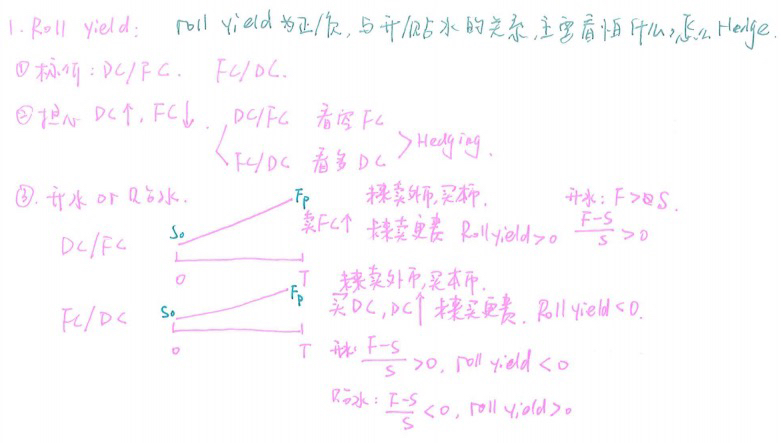 1. Roll yield: roll yield 为正/负, 与升/贴水的关系, 主要看怕什么, 怎么 Hedge.
① 标价: DC/FC. FC/DC.
② 担心 DC↑, FC↓. DC/FC 看空 FC
FC/DC 看多 DC
Hedging.
③. 升水 or 贴水.
Fp 未来卖外币,买本币. 升水: F>S.
DC/FC S₀ 卖FC↑ 未来卖更贵 Roll yield>0 F-S/S >0
0 T
未来卖外币,买本币.
FC/DC S₀ Fp 买DC, DC↑ 未来买更贵. Roll yield<0.
0 T 升水: F-S/S >0, roll yield <0
贴水: F-S/S <0, roll yield>0